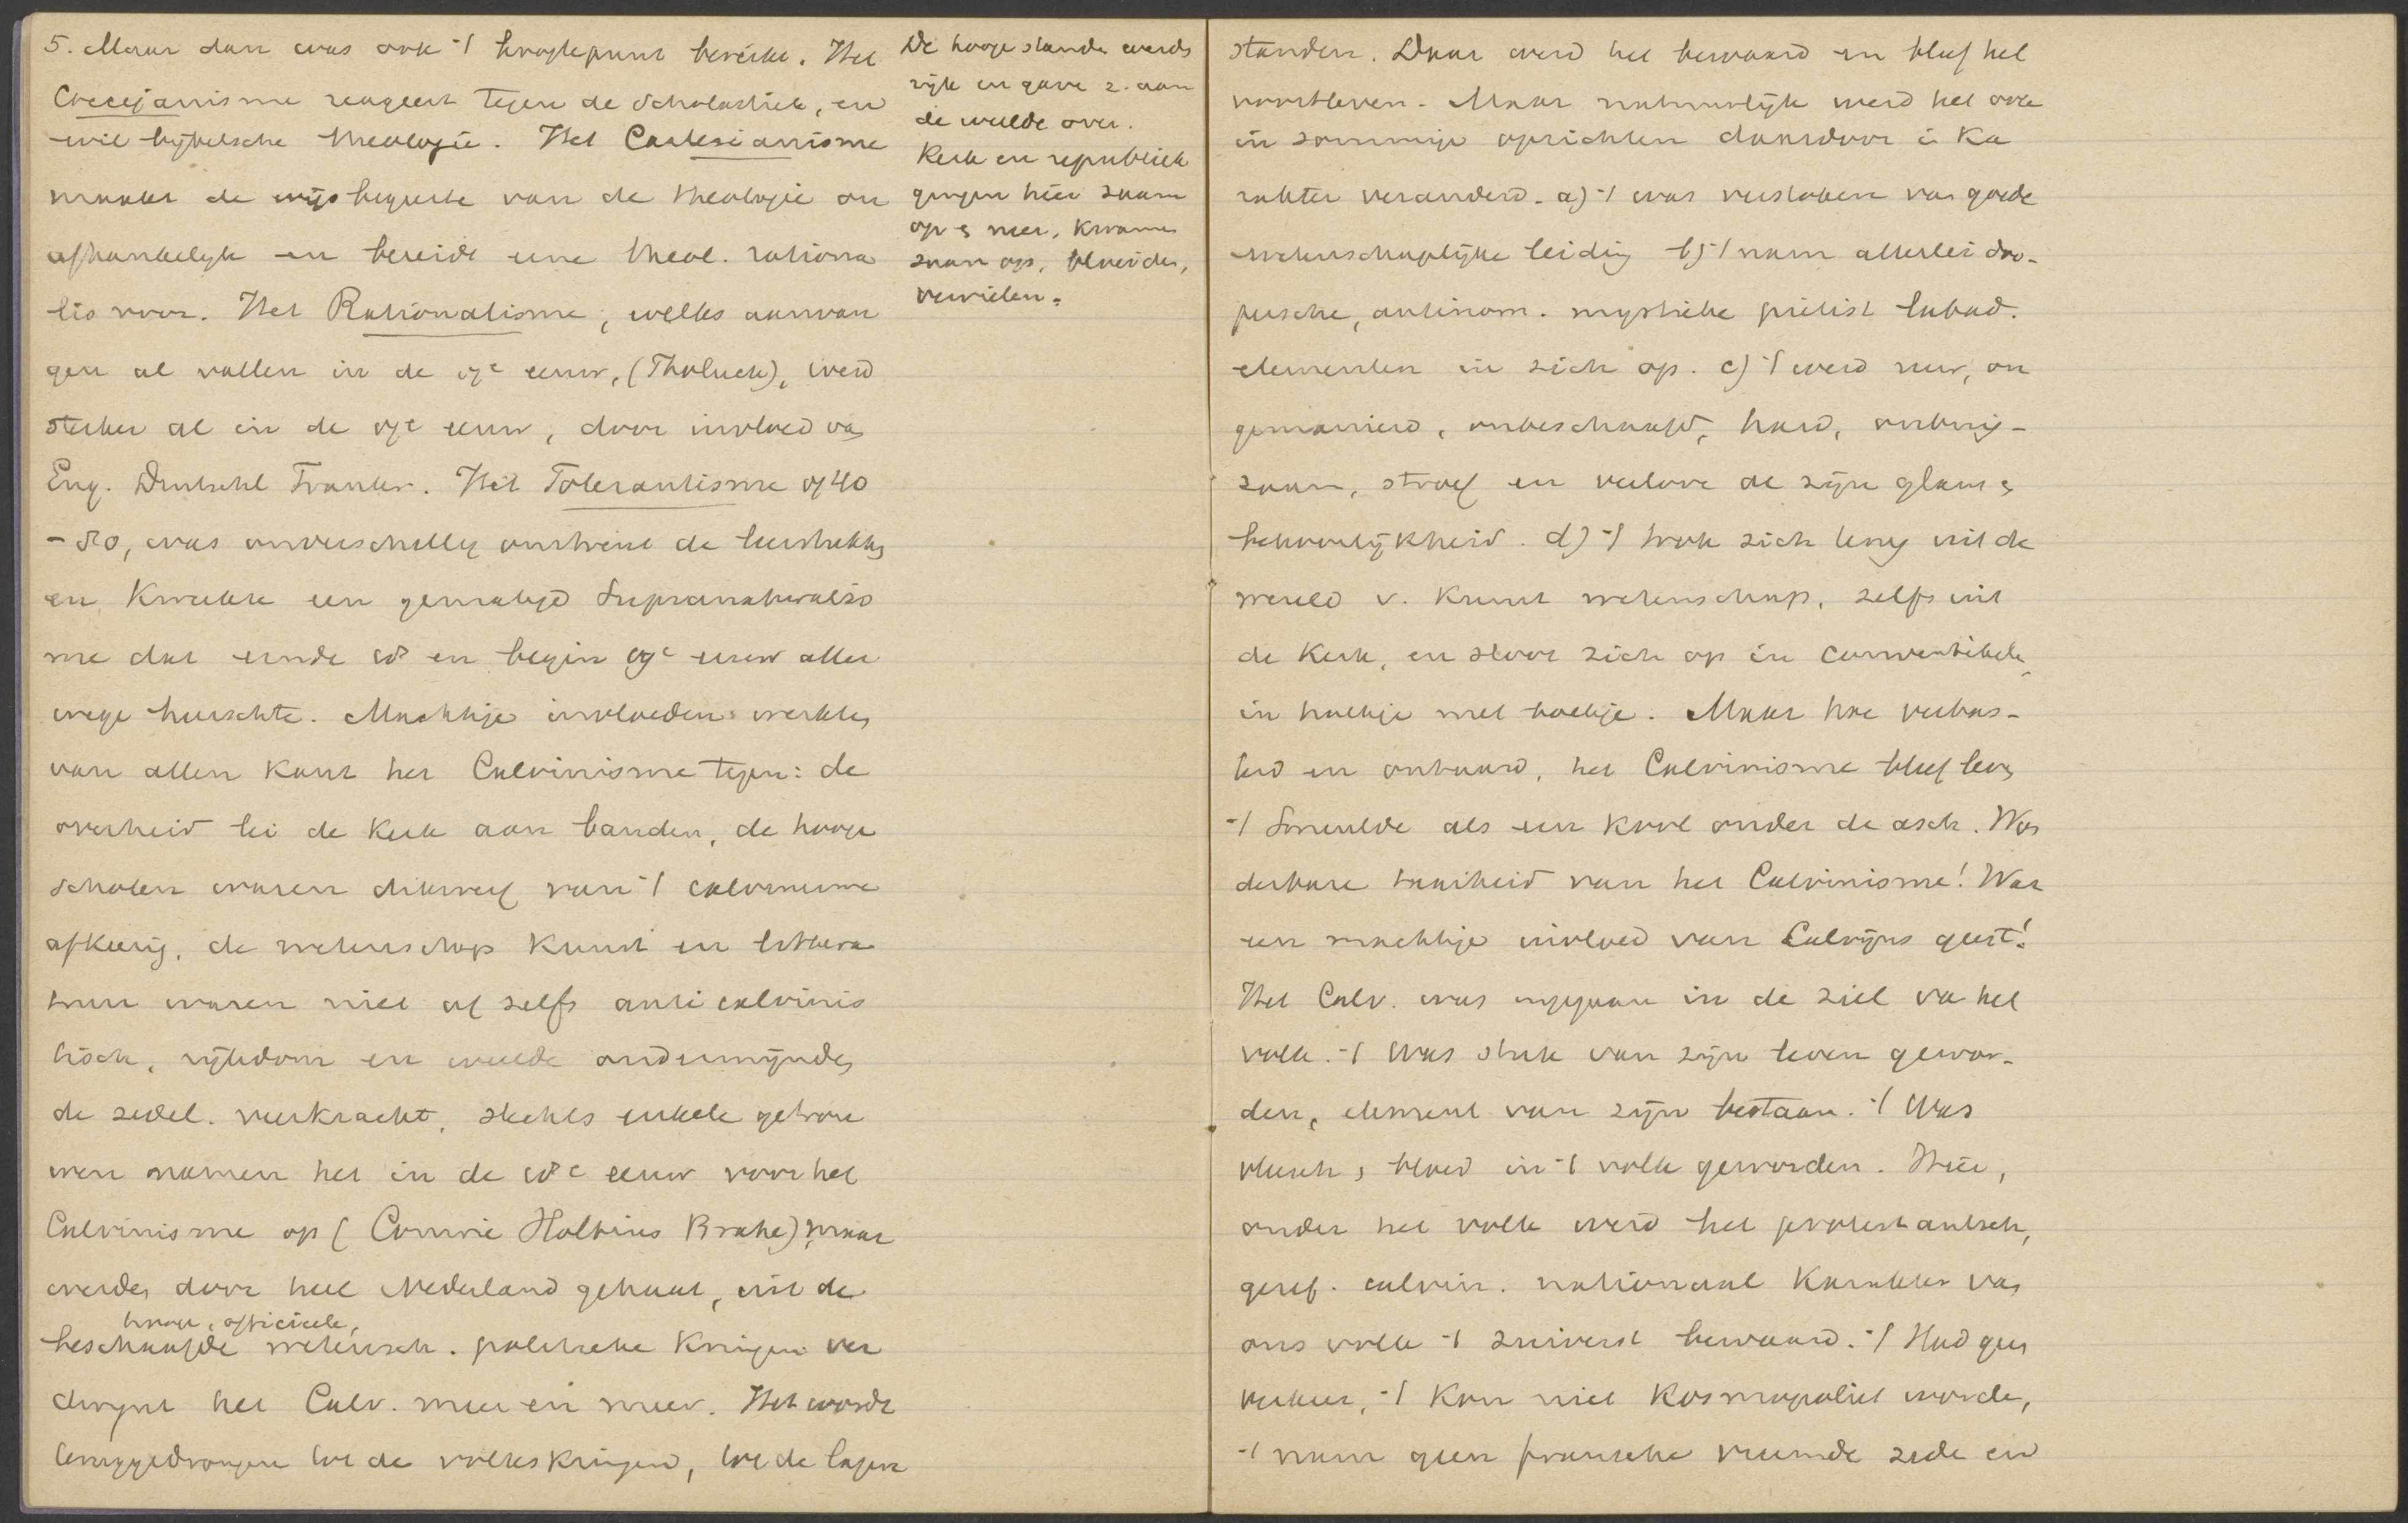 5. Maar dan was ook 't hoogtepunt bereikt. Het
Coccejanisme reageert tegen de scholastiek, en
wil bijbelsche theologie. Het Cartesianisme
maakt de wijsbegeerte van de theologie on
afhankelijk en bereidt eene theol. rationa
lis voor. Het Rationalisme, welks aanvan
gen al vallen in de 17e eeuw, (Tholuck), werd
sterker al in de 17e eeuw, door invloed van
Eng. Duitschl Frankr. Het Tolerantisme 1740
-80, was onverschillig omtrent de leerstukken
en kweekte een gematigd Supranaturalis
me dat einde 18 en begin 19e eeuw aller
wege heerschte. Machtige invloeden werkten
van allen kant het Calvinisme tegen: de
overheid lei de Kerk aan banden, de hooge
scholen waren dikwerf van 't calvinisme
afkeerig, de wetenschap kunst en littera
tuur waren niet of zelfs anti calvinis
tisch, rijkdom en weelde ondermijnden
de zedel. veerkracht, slechts enkele getrou
wen namen het in de 18e eeuw voor het
Calvinisme op (Comrie Holtius Brahe) maar
werden door heel Nederland gehaat, uit de
hooge, officieele,
beschaafde wetensch. politieke kringen ver
dwijnt het Calv. meer en meer. Het wordt
teruggedrongen tot de volkskringen, tot de lagere
De hooge standen werden
rijk en gaven z. aan
de weelde over.
Kerk en republiek
gingen hier saam
op en neer, kwamen
saam op, bloeiden,
vervielen.
standen. Daar werd het bewaard en bleef het
voortleven. Maar natuurlijk werd het ook
in sommige opzichten daardoor in ka
rakter veranderd. a) 't was verstoken van goede
wetenschaplijke leiding b) 't nam allerlei doo-
persche, antinom. mystieke piëtist labad.
elementen in zich op. c) 't werd ruw, on
gemanierd, onbeschaafd, hard, onbuig-
zaam, stroef en verloor al zijn glans en
bekoorlijkheid. d) 't trok zich terug uit de
wereld v. kunst wetenschap, zelfs uit
de Kerk, en sloot zich op in conventikels
in hoekje met boekje. Maar hoe verbas-
terd en ontaard, het Calvinisme bleef leven
't Smeulde als een kool onder de asch. Won
derbare taaiheid van het Calvinisme! Wat
een machtige invloed van Calvijns geest!
Het Calv. was ingegaan in de ziel van het
volk. 't Was stuk van zijn leven gewor-
den, element van zijn bestaan. 't Was
vleesch en bloed in 't volk geworden. Hier,
onder het volk werd het protestantsch,
geref. calvin. nationaal karakter van
ons volk 't zuiverst bewaard. 't Had geen
verkeer, 't kon niet kosmopoliet worden,
't nam geen fransche vreemde zede en